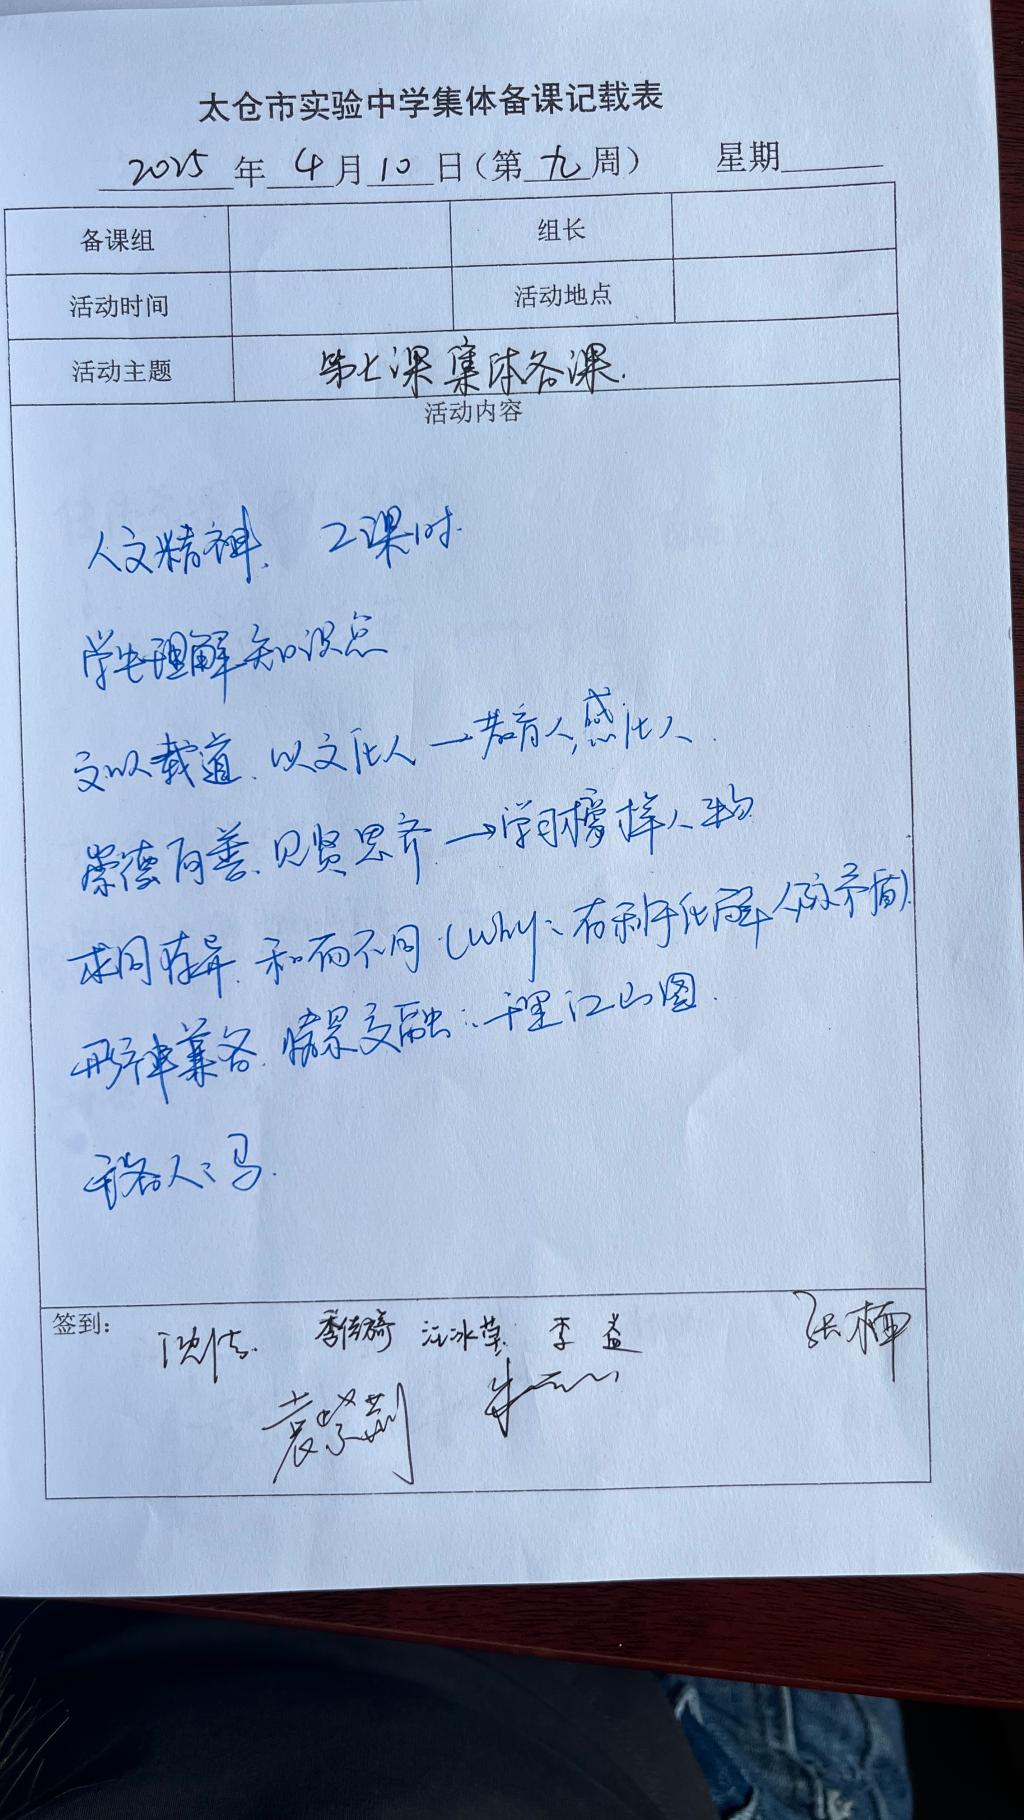 太仓市实验中学集体备课记载表
2025年4月10日（第九周） 星期
备课组 组长
活动时间 活动地点
活动主题 第七课集体备课.
活动内容
人文精神. 2课时.
学生理解知识点
文以载道、以文化人→教育人,感化人.
崇德向善、见贤思齐→学习榜样人物
求同存异、和而不同（Why：有利于化解人际矛盾）.
形神兼备、情景交融：千里江山图.
人：马.
签到：
季 益 张楠
袁紫荊